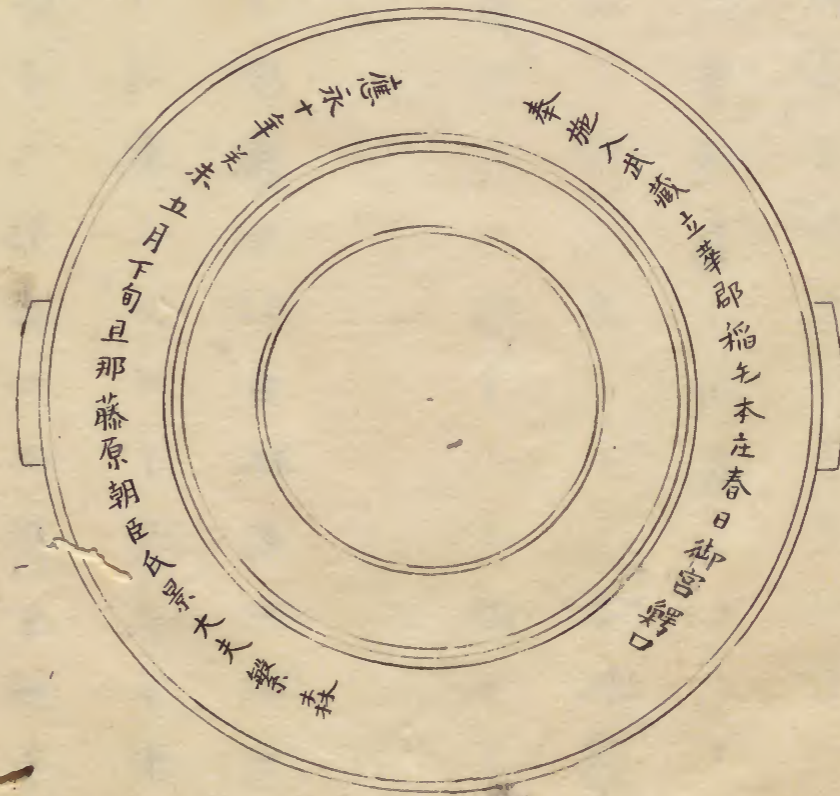 奉施入武藏立華郡稲毛本庄春日御宮鰐口
應永十年癸未五月下旬旦那藤原朝臣氏景大夫繁